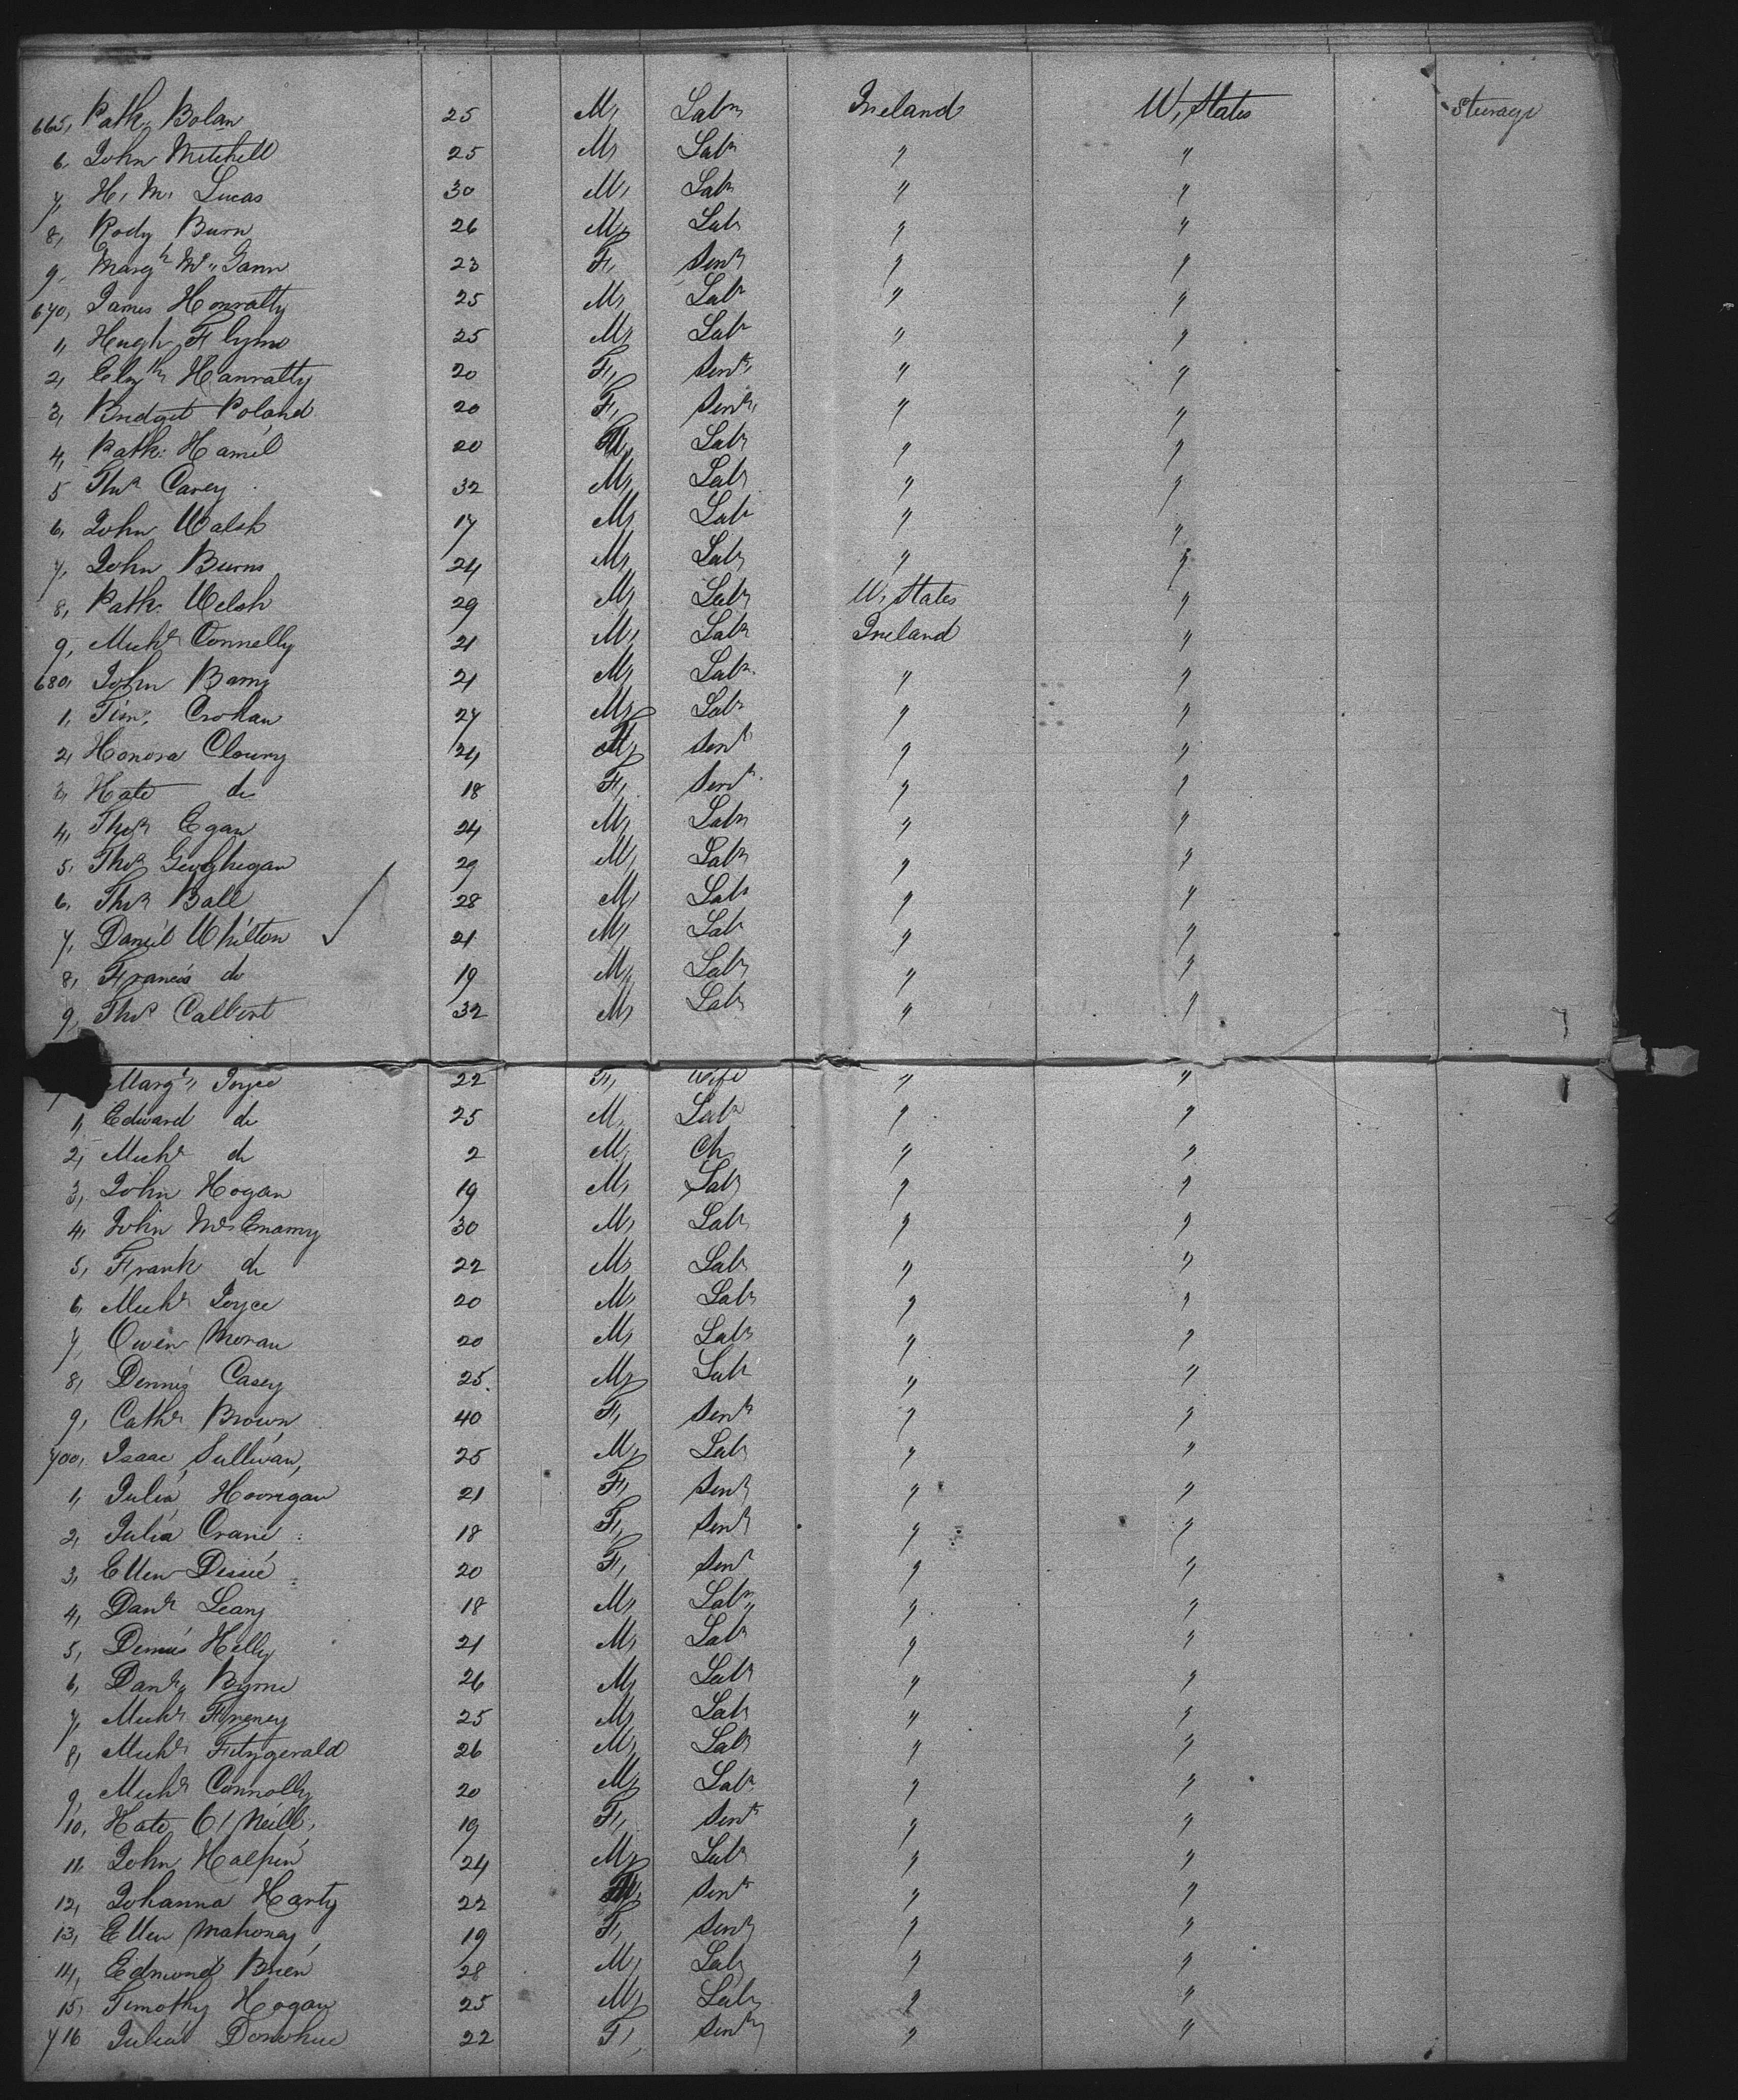 665, Patk. Bolan 25 M, Labr Ireland U, States Steerage
6, John Mitchell 25 M, Labr " "
7, H, M, Lucas 30 M, Labr " "
8, Rody Burn 26 M, Labr " "
9, Margt Mc Gann 23 F, Servt " "
670, James Honratty 25 M, Labr " "
1, Hugh Flynn 25 M, Labr " "
2, Elizth Hanratty 20 F, Servt, " "
3, Bridget Poland 20 F, Servt, " "
4, Patk: Hamil 20 M, Labr " "
5 Thos Carey 32 M, Labr " "
6, John Walsh 17 M, Labr " "
7, John Burns 24 M, Labr " "
8, Patk. Welsh 29 M, Labr U, States "
9, Michl Connelly 21 M, Labr Ireland "
680, John Barry 21 M, Labr " "
1, Tim, Crohan 27 M, Labr " "
2, Honora Cloury 24 F, Servt " "
3, Kate do 18 F, Servt " "
4, Thos Egan 24 M, Labr " "
5, Thos Geoghegan 29 M, Labr " "
6, Thos Ball 28 M, Labr " "
7, Daniel Whilton ✓ 21 M, Labr " "
8, Francis do 19 M, Labr " "
9, Thos Calbert 32 M, Labr " "
Margt, Joyce 22 F, Wife " "
1, Edward do 25 M, Labr " "
2, Michl do 2 M, Ch " "
3, John Hogan 19 M, Labr " "
4, John Mc Enamy 30 M, Labr " "
5, Frank do 22 M, Labr " "
6, Michl Joyce 20 M, Labr " "
7, Owen Moran 20 M, Labr " "
8, Dennis Casey 25. M, Labr " "
9, Cathr Brown, 40 F, Servt " "
700, Isaac Sullivan, 25 M, Labr " "
1, Julia Hoorigan 21 F, Servt " "
2, Julia Crane 18 F, Servt " "
3, Ellen 20 F, Servt " "
4, Danl Leary 18 M, Labr " "
5, Dennis Kelly 21 M, Labr " "
6, Danl, Byrne 26 M, Labr " "
7, Michl Freney 25 M, Labr " "
8, Michl Fitzgerald 26 M, Labr " "
9, Michl Connolly 20 M, Labr " "
10, Kate O'Neill, 19 F, Servt " "
11, John Halpin 24 M, Labr " "
12, Johanna Harty 22 F, Servt " "
13, Ellen Mahoney, 19 F, Servt " "
14, Edmond Brien 28 M, Labr " "
15, Timothy Hogan 25 M, Labr " "
716 Julia Donohue 22 F, Servt " "